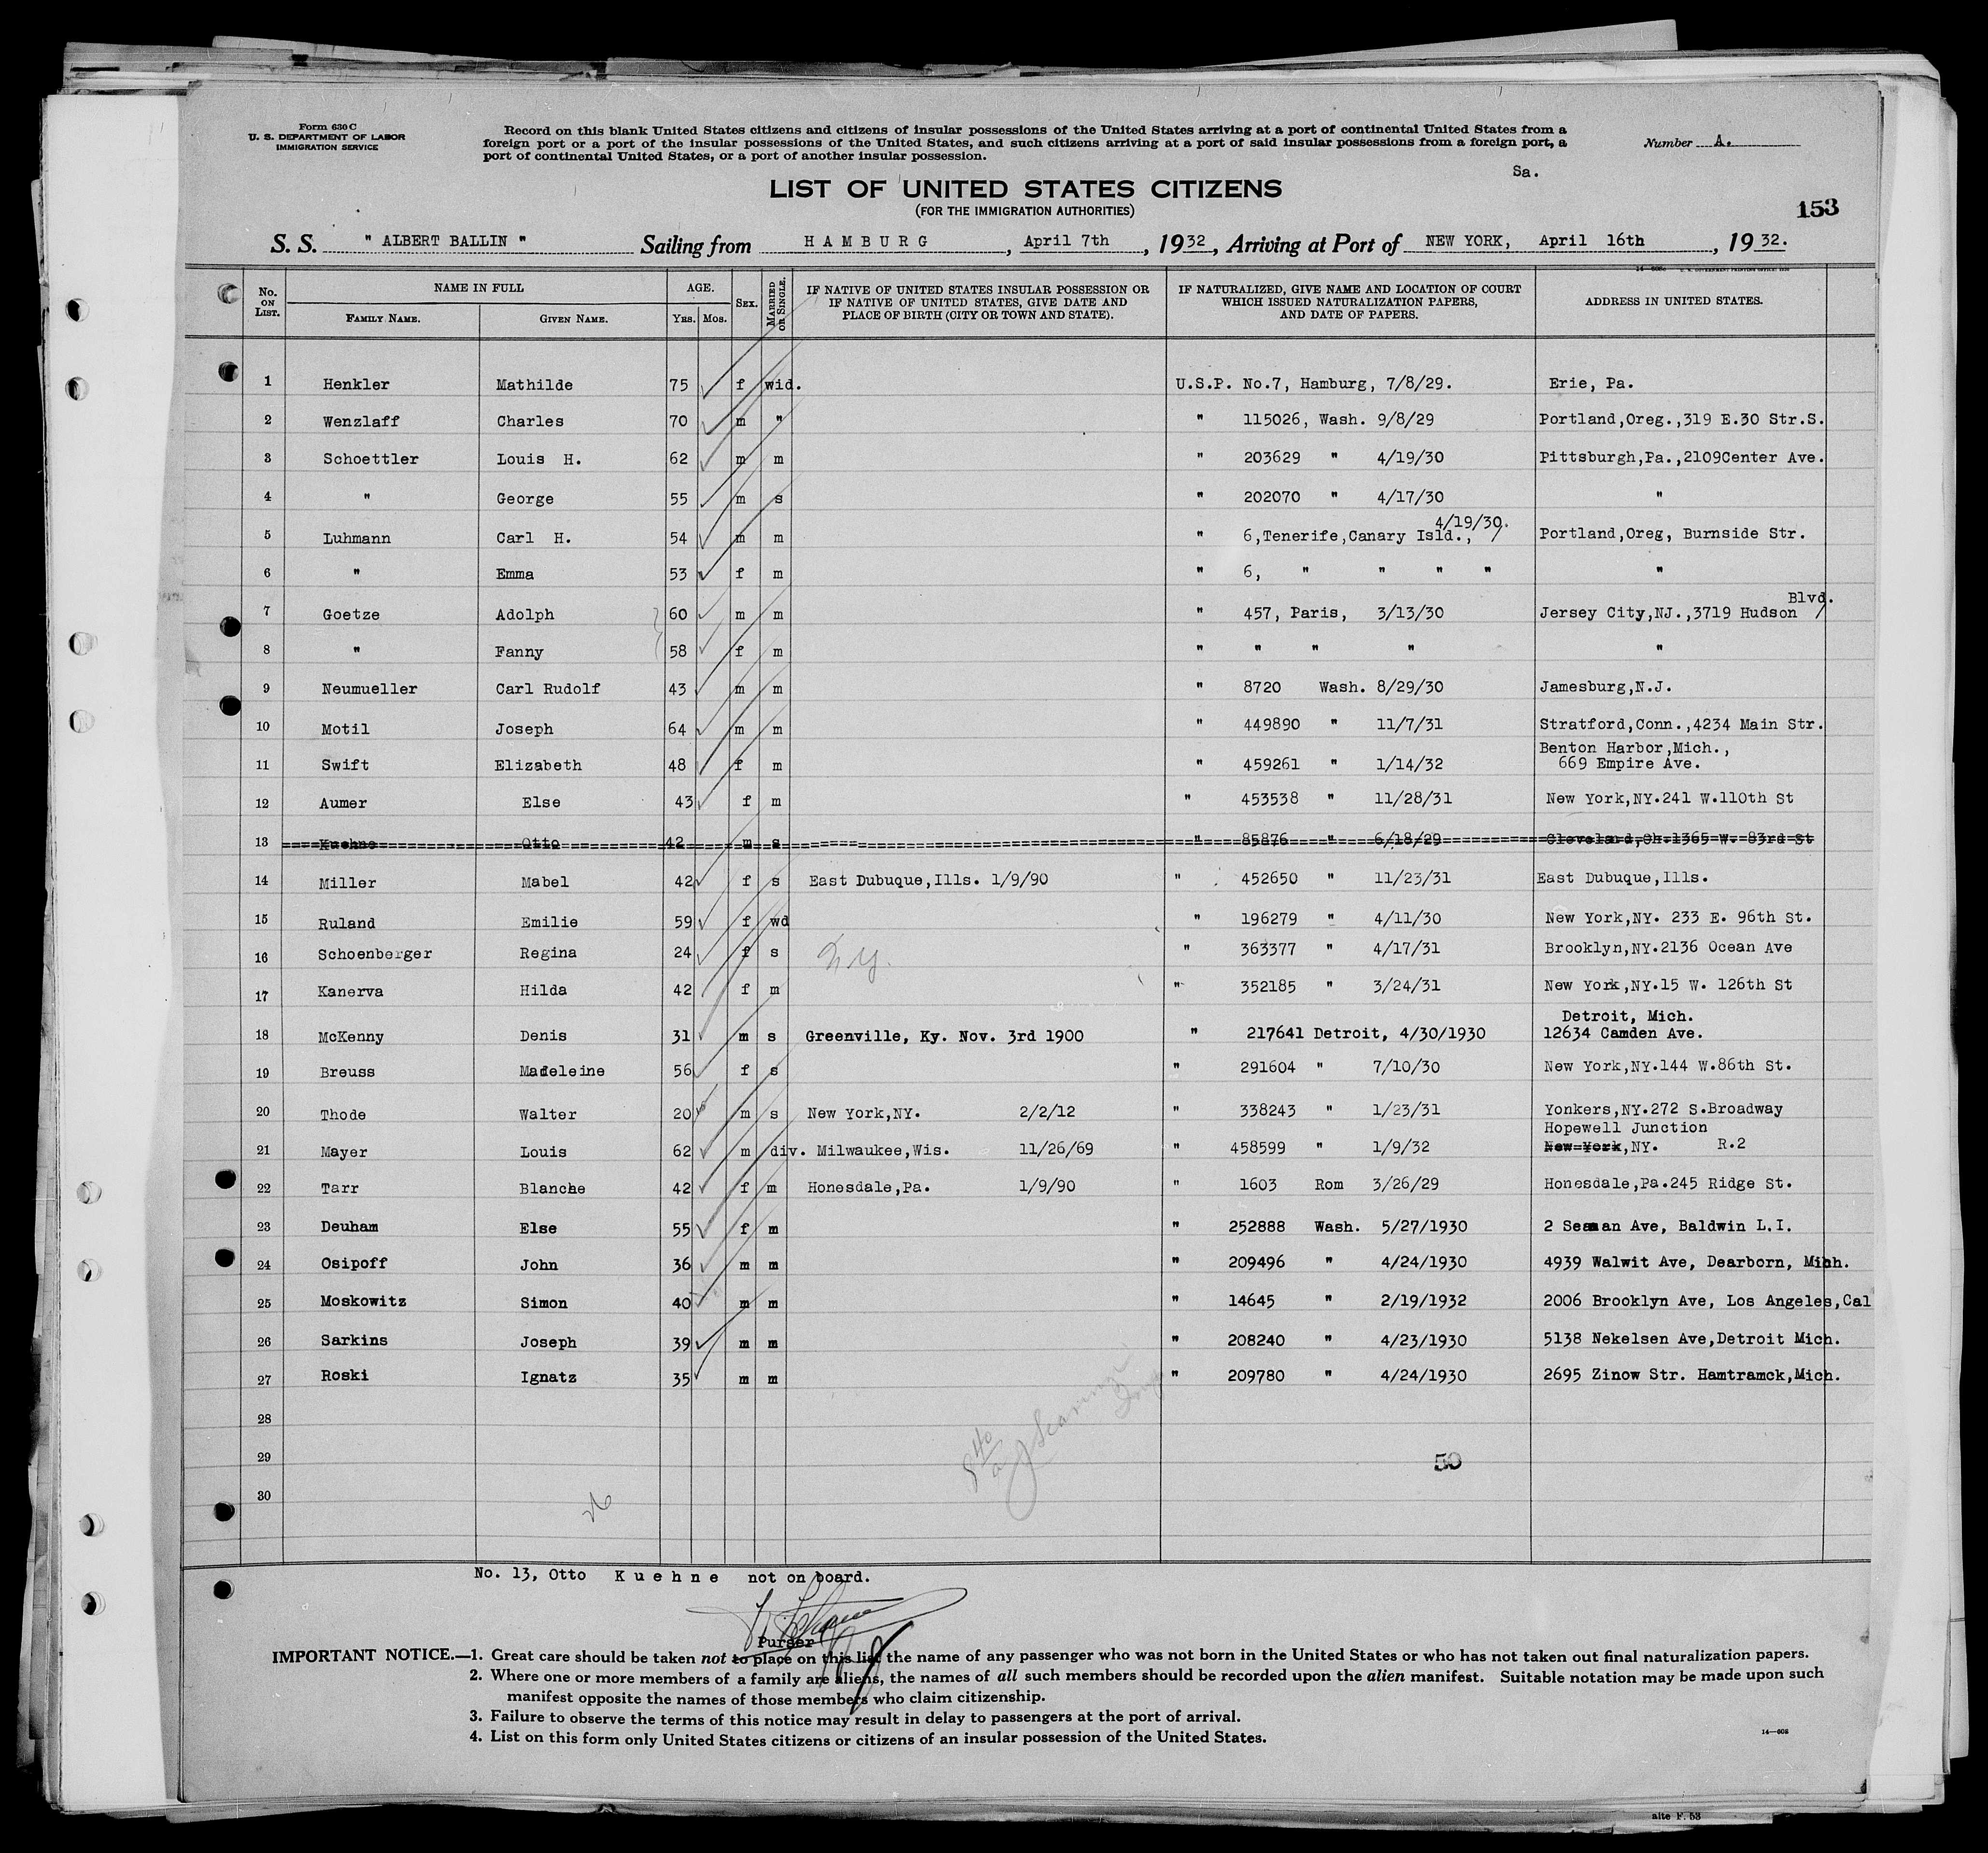 Form 630 C
U. S. DEPARTMENT OF LABOR
IMMIGRATION SERVICE
Record on this blank United States citizens and citizens of insular possessions of the United States arriving at a port of continental United States from a
foreign port or a port of the insular possessions of the United States, and such citizens arriving at a port of said insular possessions from a foreign port, a
port of continental United States, or a port of another insular possession.
Number A.
Sa.
LIST OF UNITED STATES CITIZENS
(FOR THE IMMIGRATION AUTHORITIES)
153
S. S. " ALBERT BALLIN " Sailing from HAMBURG, April 7th, 1932, Arriving at Port of NEW YORK, April 16th, 1932.
No. ON LIST. NAME IN FULL FAMILY NAME. GIVEN NAME. AGE. YRS. MOS. SEX. MARRIED OR SINGLE. IF NATIVE OF UNITED STATES INSULAR POSSESSION OR IF NATIVE OF UNITED STATES, GIVE DATE AND PLACE OF BIRTH (CITY OR TOWN AND STATE). IF NATURALIZED, GIVE NAME AND LOCATION OF COURT WHICH ISSUED NATURALIZATION PAPERS, AND DATE OF PAPERS. ADDRESS IN UNITED STATES.
1 Henkler Mathilde 75 f wid. U.S.P. No.7, Hamburg, 7/8/29. Erie, Pa.
2 Wenzlaff Charles 70 m " " 115026, Wash. 9/8/29 Portland,Oreg.,319 E.30 Str.S.
3 Schoettler Louis H. 62 m m " 203629 " 4/19/30 Pittsburgh,Pa.,2109Center Ave.
4 " George 55 m s " 202070 " 4/17/30 "
4/19/30.
5 Luhmann Carl H. 54 m m " 6,Tenerife,Canary Isld., / Portland,Oreg, Burnside Str.
6 " Emma 53 f m " 6, " " " " "
Blvd.
7 Goetze Adolph 60 m m " 457, Paris, 3/13/30 Jersey City,NJ.,3719 Hudson /
8 " Fanny 58 f m " " " " "
9 Neumueller Carl Rudolf 43 m m " 8720 Wash. 8/29/30 Jamesburg,N.J.
10 Motil Joseph 64 m m " 449890 " 11/7/31 Stratford,Conn.,4234 Main Str.
Benton Harbor,Mich.,
11 Swift Elizabeth 48 f m " 459261 " 1/14/32 669 Empire Ave.
12 Aumer Else 43 f m " 453538 " 11/28/31 New York,NY.241 W.110th St
13 Kuehne Otto 42 m s " 85876 " 6/18/29 Cleveland,Oh.1365 W. 83rd St
14 Miller Mabel 42 f s East Dubuque,Ills. 1/9/90 " 452650 " 11/23/31 East Dubuque,Ills.
15 Ruland Emilie 59 f wd " 196279 " 4/11/30 New York,NY. 233 E. 96th St.
16 Schoenberger Regina 24 f s N.Y. " 363377 " 4/17/31 Brooklyn,NY.2136 Ocean Ave
17 Kanerva Hilda 42 f m " 352185 " 3/24/31 New York,NY.15 W. 126th St
Detroit, Mich.
18 McKenny Denis 31 m s Greenville, Ky. Nov. 3rd 1900 " 217641 Detroit, 4/30/1930 12634 Camden Ave.
19 Breuss Madeleine 56 f s " 291604 " 7/10/30 New York,NY.144 W.86th St.
20 Thode Walter 20 m s New York,NY. 2/2/12 " 338243 " 1/23/31 Yonkers,NY.272 S.Broadway
Hopewell Junction
21 Mayer Louis 62 m div. Milwaukee,Wis. 11/26/69 " 458599 " 1/9/32 New York,NY. R.2
22 Tarr Blanche 42 f m Honesdale,Pa. 1/9/90 " 1603 Rom 3/26/29 Honesdale,Pa.245 Ridge St.
23 Deuham Else 55 f m " 252888 Wash. 5/27/1930 2 Seaman Ave, Baldwin L.I.
24 Osipoff John 36 m m " 209496 " 4/24/1930 4939 Walwit Ave, Dearborn, Mich.
25 Moskowitz Simon 40 m m " 14645 " 2/19/1932 2006 Brooklyn Ave, Los Angeles,Cal
26 Sarkins Joseph 39 m m " 208240 " 4/23/1930 5138 Nekelsen Ave,Detroit Mich.
27 Roski Ignatz 35 m m " 209780 " 4/24/1930 2695 Zinow Str. Hamtramck,Mich.
28
29 50
30
26
No. 13, Otto Kuehne not on board.
Purser
IMPORTANT NOTICE.—1. Great care should be taken not to place on this list the name of any passenger who was not born in the United States or who has not taken out final naturalization papers.
2. Where one or more members of a family are aliens, the names of all such members should be recorded upon the alien manifest. Suitable notation may be made upon such
manifest opposite the names of those members who claim citizenship.
3. Failure to observe the terms of this notice may result in delay to passengers at the port of arrival.
4. List on this form only United States citizens or citizens of an insular possession of the United States.
14—608
alte F. 53